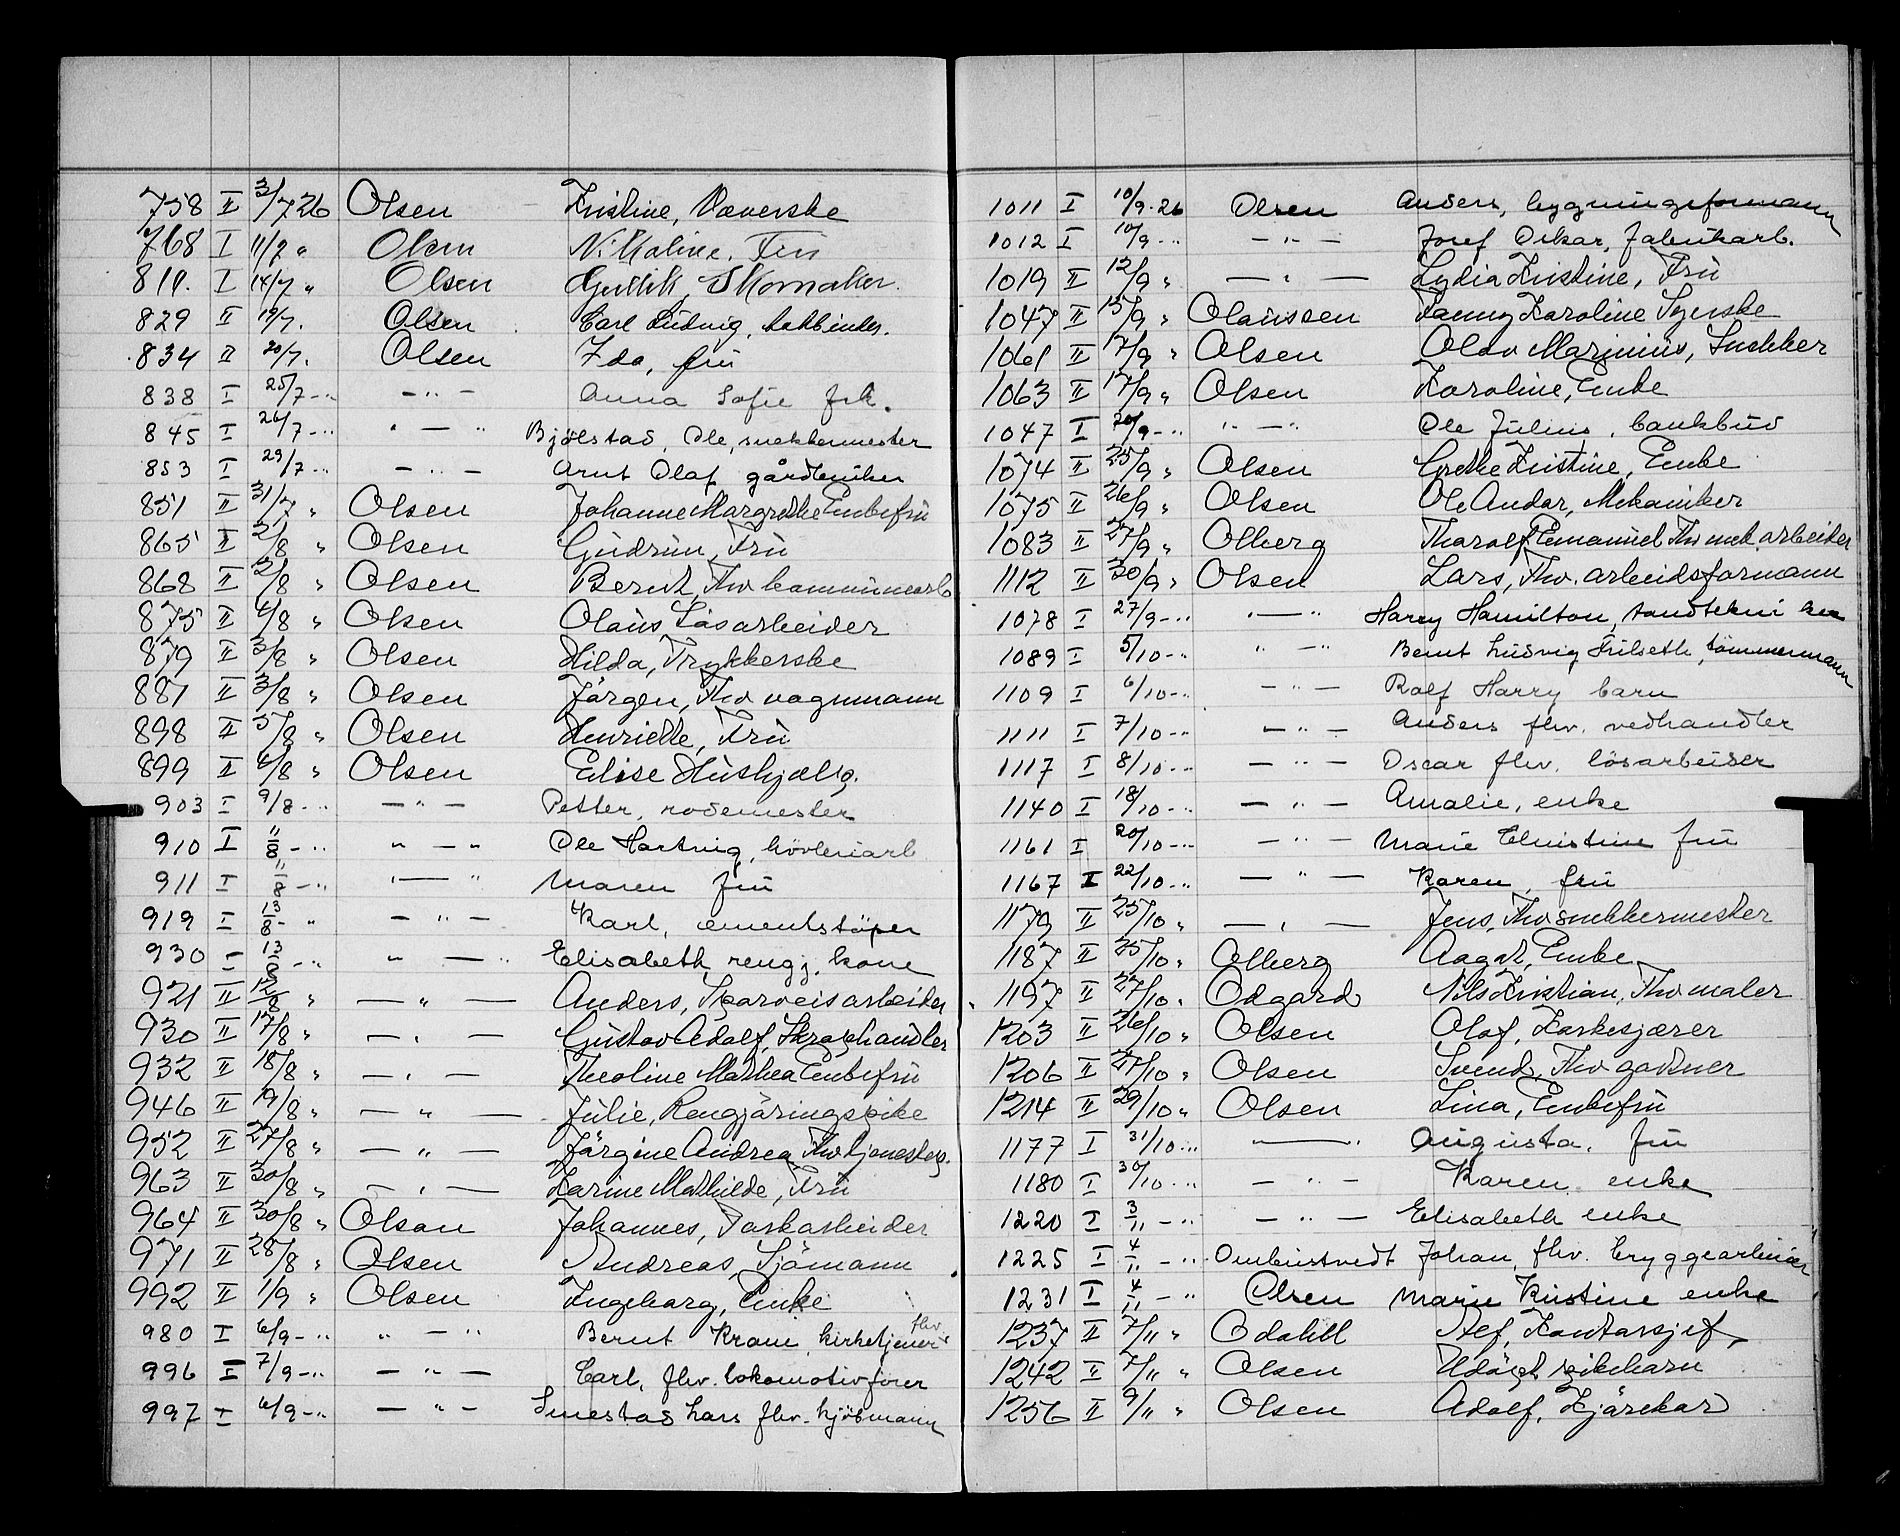 758 II 3/7 26 Olsen Kristine, Væverske
768 I 11/7 " Olsen Nikoline. Fru
811. I 14/7 " Olsen Gullik, Skomaker.
829 II 19/7. Olsen Carl Ludvig,
834 II 20/7. Olsen Ida, fru
838 I 25/7 -"- — " — Anna Sofie frk.
845 I 26/7 -"- " — " Bjølstad, Ole, snekkermester
853 I 29/7 -"- — " — Arnt Olaf gårdbruker
851 II 31/7 " Olsen Johanne Margrethe Enkefru
865 II 2/8 " Olsen Gudrun, Fru
868 II 2/8 " Olsen Bernt, Fhv kommunearb
875 II 4/8 " Olsen Olaus Løsarbeider
879 II 3/8 " Olsen Hilda, Trykkerske
881 II 3/8 " Olsen Jörgen, Fhv vognmann
898 II 5/8 " Olsen Henriette, Fru
899 II 6/8 " Olsen Elise Hushjælp.
903 I 9/8 -"- — " — Petter, rodemester
910 I 11/8 -"- " — " Ole Hartvig, høvleriarb
911 I 11/8 -"- " — " Maren fru
919 I 13/8 - " — " — Karl, cementstøper
930 I 13/8 -"- " — " Elisabeth rengj. kone
921 II 12/8 " — " — Anders, Sporveisarbeider
930 II 17/8 " — " — Gustav Adolf, Skraphandler
932 II 18/8 " — " — Theoline Mathea Enkefru
946 II 19/8 " — " — Julie, Rengjöringspike
952 II 27/8 " — " — Jörgine Andrea Fhv tjenestep.
963 II 30/8 " — " — Karine Mathilde, Fru
964 II 30/8 " Olsen Johannes, Torkarbeider
971 II 28/8 " Olsen Andreas, Sjömann
992 II 1/9 " Olsen Ingeborg, Enke
980 I 6/9 -"- " — " Bernt Krani, kirketjener fhv.
996 I 7/9 -"- — " — Carl, fhv. lokomotivfører
997 I 6/9 -"- — " — Smestad Lars fhv. kjøbmann
1011 I 10/9.26 Olsen Anders, bygningsformann
1012 I 10/9 -"- — " — Josef Oskar, fabrikarb.
1019 II 12/9 " — " — Lydia Kristine, Fru
1047 II 15/9 " Olaussen Fanny Karoline Syerske
1061 II 17/9 " Olsen Olav Marinius, Snekker
1063 II 17/9 " Olsen Karoline, Enke
1047 I 20/9 -"- " — " Ole Julius, bankbud
1074 II 25/9 " Olsen Grethe Kristine, Enke
1075 II 26/9 " Olsen Ole Andar, Mekaniker
1083 II 27/9 " Olberg Tharolf Emanuel Fhv mek. arbeider
1112 II 30/9 " Olsen Lars, Fhv. arbeidsformann
1078 I 27/9 -"- " — " Harry Hamilton, tandtekniker
1089 I 5/10 -"- " — " Bernt Ludvig Fulseth, tømmermann
1109 I 6/10 -"- — " — Rolf Harry barn
1111 I 7/10 -"- — " — Anders fhv. vedhandler
1117 I 8/10 -"- — " — Oscar fhv. løsarbeider
1140 I 18/10 -"- — " — Amalie, enke
1161 I 20/10 -"- — " — Marie Christine fru
1167 I 22/10 -"- — " — Karen, fru
1179 II 25/10 " — " — Jens, Fhv snekkermester
1187 II 25/10 " Olberg Aagot, Enke
1197 II 27/10 " Odgard Nils Kristian, Fhv maler
1203 II 26/10 " Olsen Olaf, Korkskjærer
1206 II 27/10 " Olsen Svend, Fhv gartner
1214 II 29/10 " Olsen Lina, Enkefru
1177 I 31/10 -"- — " Augusta, fru
1180 I 30/10 -"- — " — Karen, enke
1220 I 3/11 -"- — " — Elisabeth enke
1225 I 4/11 -"- Ombustvedt Johan, fhv. bryggearbeider
1231 I 4/11 -"- Olsen Marie Kristine enke
1237 II 7/11 " Odahl Alf, Kontorsjef
1242 II 7/11 " Olsen Udöpt pikebarn
1256 II 9/11 " Olsen Adolf, Kjörekar